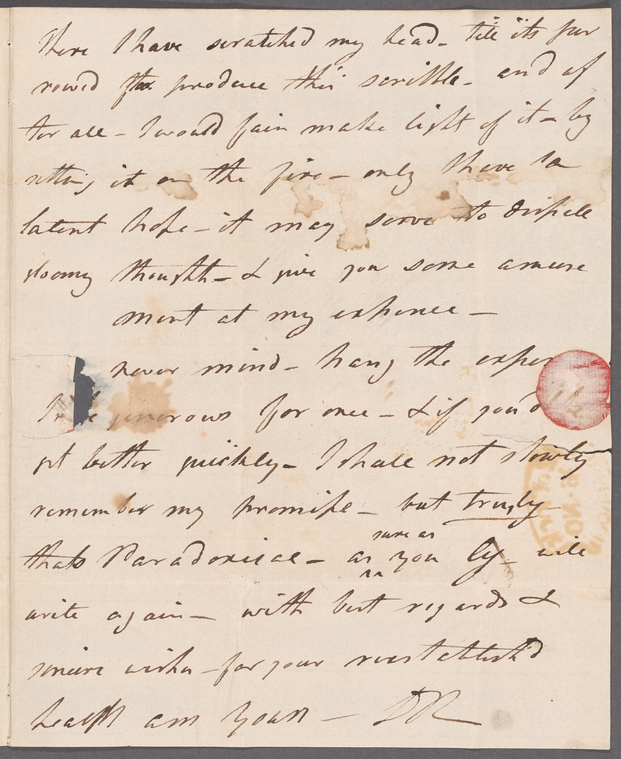 There I have scratched my head - till its fur
rowd to produce this scribble - and af
ter all - I would fain make light of it - by
utting it on the fire - only I have a
latent hope - it may serve to dispell
gloomy thought - & give you some amuse
ment at my expence -
never mind - hang the expen
generous for once - & if you'd
get better quickly - I shall not slowly
remember my promise - but truly -
thats Paradoxical -
sure as
as you will
write again - with best regards &
sincere wishes - for your reestablish'd
health am Yours - DR